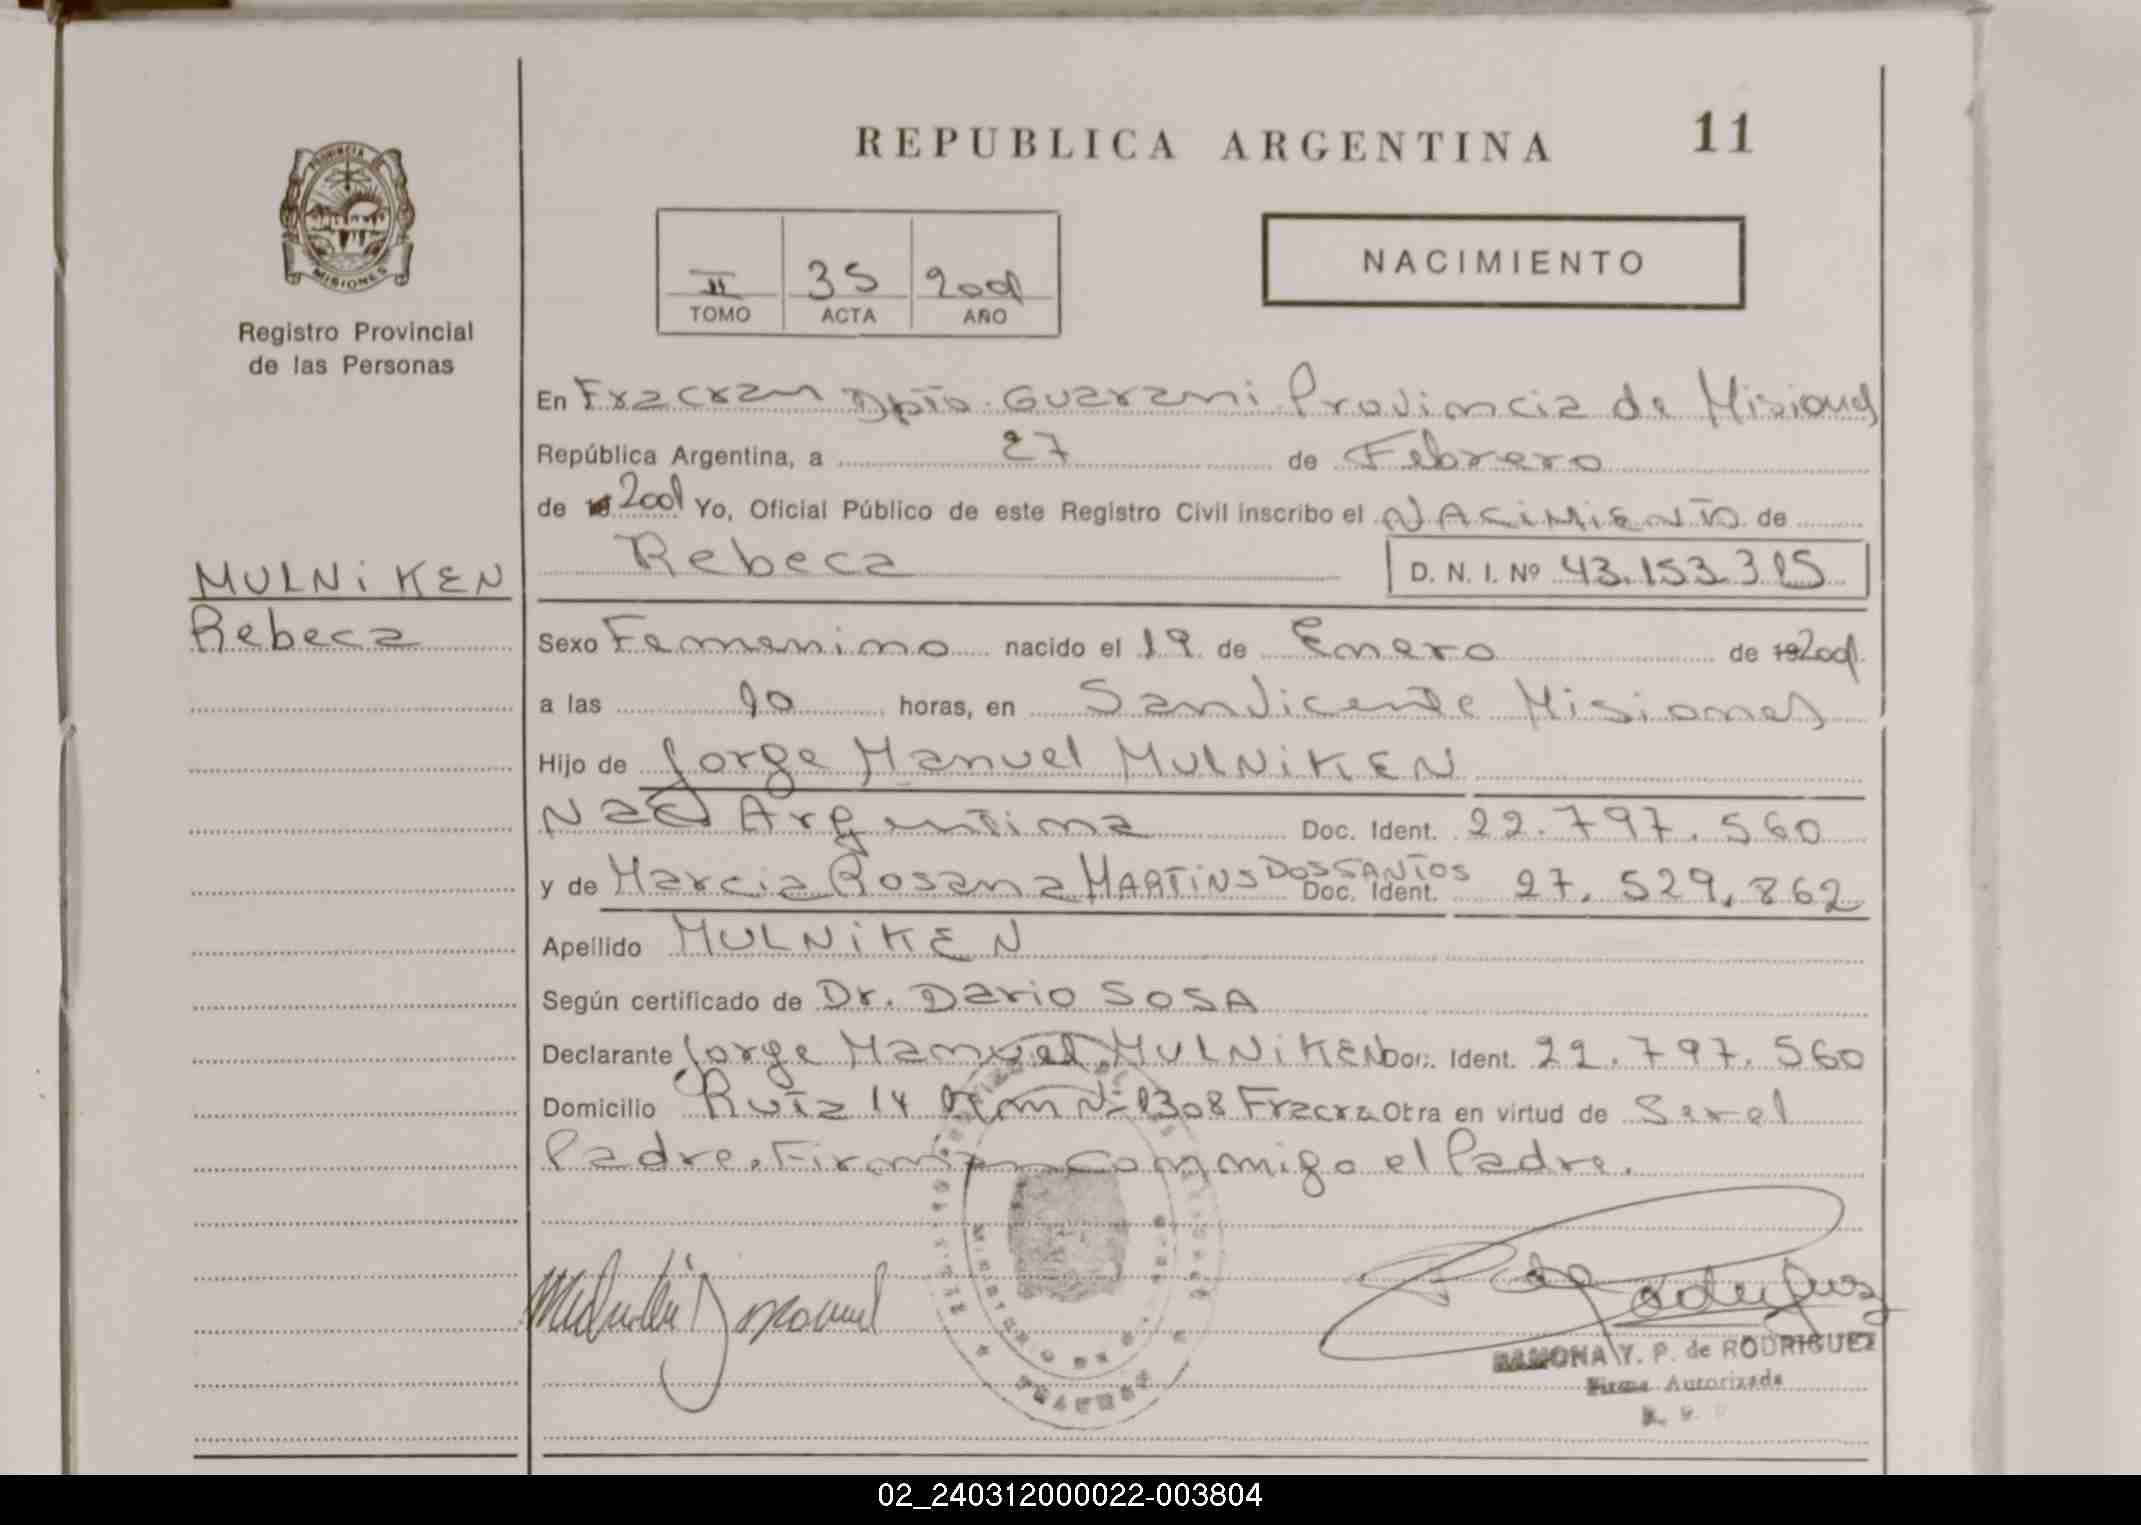 REPUBLICA ARGENTINA
11
PROVINCIA DE
MISIONES
Registro Provincial
de las Personas
II 35 2001
TOMO ACTA AÑO
NACIMIENTO
En Fracran Dpto. Guarani Provincia de Misiones
República Argentina, a 27 de Febrero
de 2001 Yo, Oficial Público de este Registro Civil inscribo el NACIMIENTO de
Rebeca D. N. I. Nº 43.153.315
MULNIKEN
Rebeca
Sexo Femenino nacido el 19 de Enero de 19 2001
a las 10 horas, en San Vicente Misiones
Hijo de Jorge Manuel MULNIKEN
Nac Argentina Doc. Ident. 22.797.560
y de Marcia Rosana MARTINS DOS SANTOS Doc. Ident. 27.529.862
Apellido MULNIKEN
Según certificado de Dr. Dario SOSA
Declarante Jorge Manuel MULNIKEN Doc. Ident. 22.797.560
Domicilio Ruta 14 Km Nº 1308 Fracra Obra en virtud de Ser el
Padre. Firman conmigo el Padre.
RAMONA Y. P. de RODRIGUEZ
Firma Autorizada
02_240312000022-003804